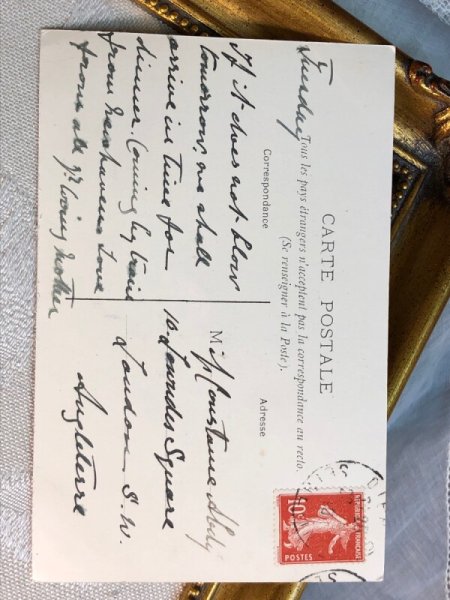 CARTE POSTALE
Tous les pays étrangers n'acceptent pas la correspondance au recto.
(Se renseigner à la Poste).
Correspondance
Adresse
Tuesday
If it does not blow
tomorrow, we shall
arrive in time for
dinner. Coming by train
from Newhaven. Love
from all yr loving mother
M iss Constance
10 Lowndes Square
London S.W.
Angleterre
10c
POSTES